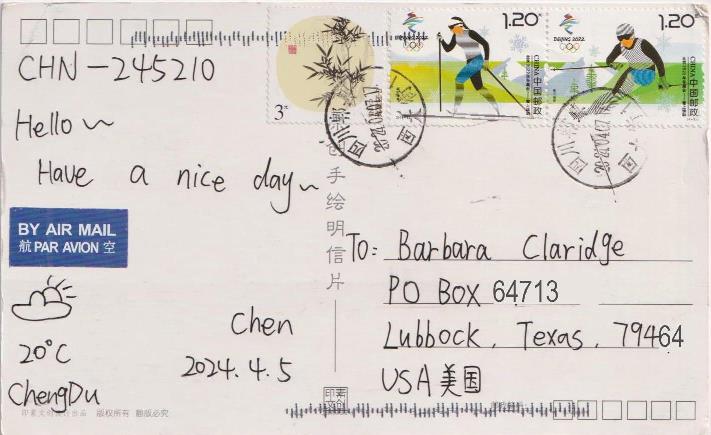 CHN-245210
Hello~
Have a nice day~
BY AIR MAIL
航 PAR AVION 空
20°C
ChengDu
Chen
2024.4.5
To: Barbara Claridge
PO BOX 64713
Lubbock, Texas, 79464
USA 美国
3元
1.20元
BEIJING 2022
CHINA 中国邮政
1.20元
BEIJING 2022
CHINA 中国邮政
四川
四川
手绘明信片
版权所有 翻版必究